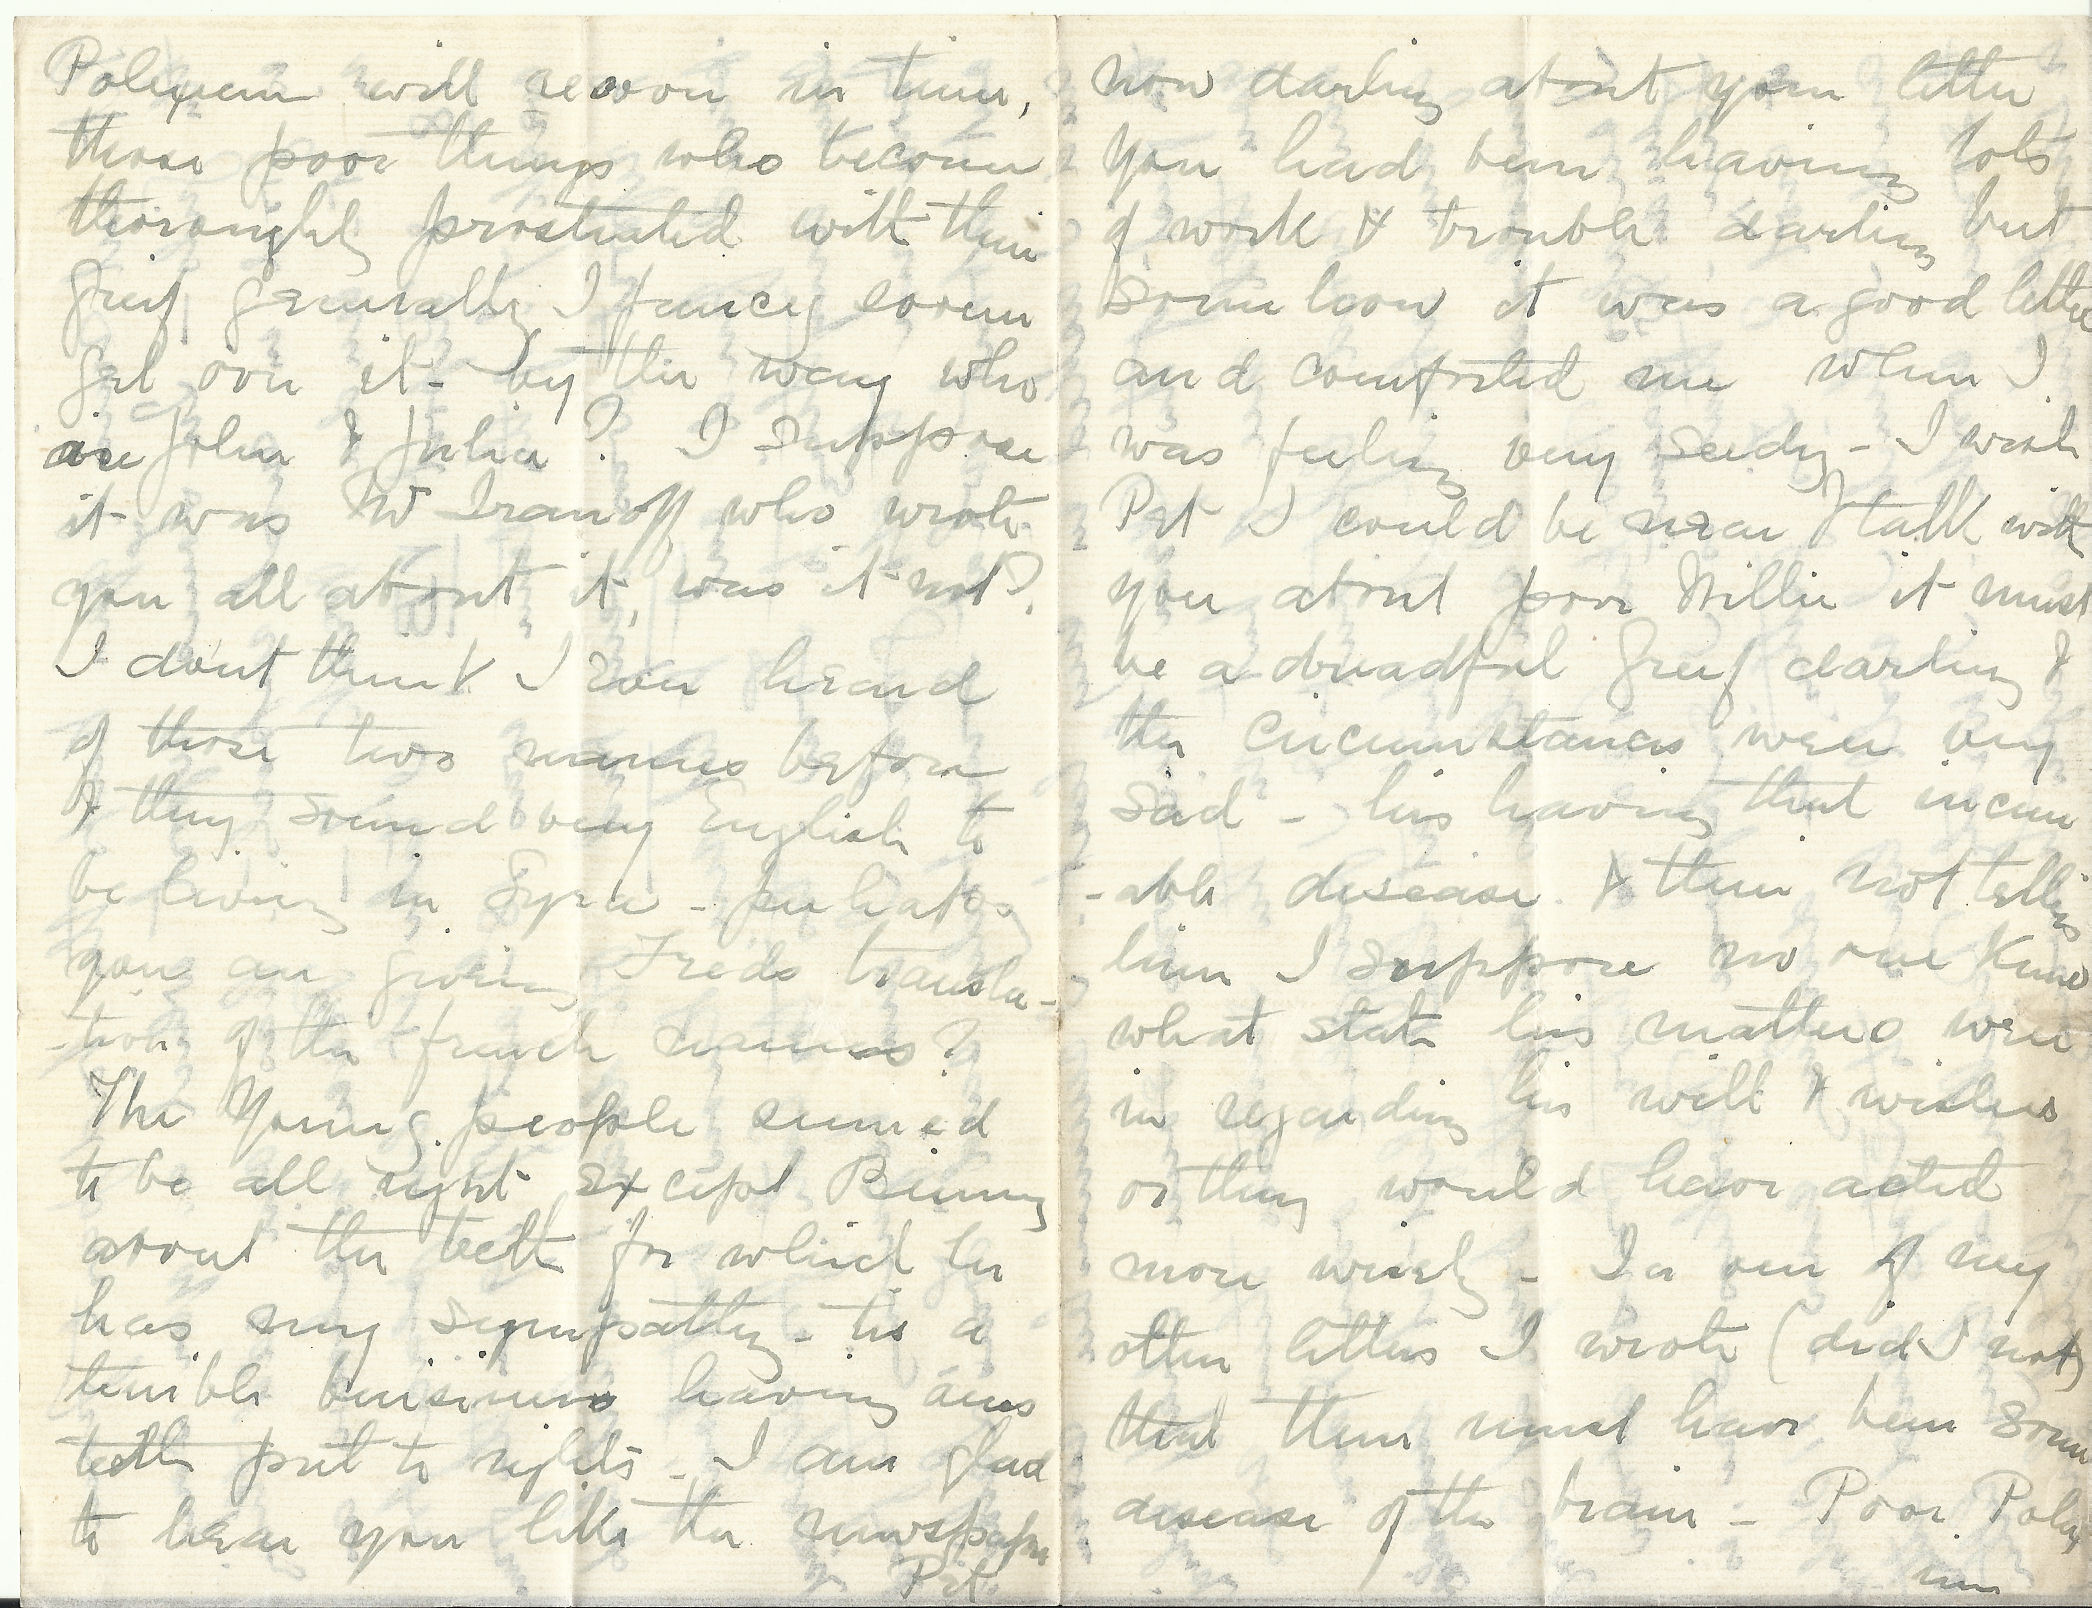 will recover in time,
those poor things who become
thoroughly prostrated with their
grief generally I fancy soon
get over it - by the way who
are John & Julia? I suppose
it was who wrote
you all about it, was it not?
I dont think I ever heard
of those two names before
& they sound very English to
be living in Syra - perhaps
you are giving Freds transla-
-tion of the french names?
The Young people seemed
to be all right except Binny
about the teeth for which he
has my sympathy - tis a
terrible buisiness having ones
teeth put to rights - I am glad
to hear you like the newspaper
Pet
now darling about your letter
you had been having lots
of work & trouble darling but
somehow it was a good letter
and comforted me when I
was feeling very seedy - I wish
Pet I could be near & talk with
you about poor Willie it must
be a dreadful grief darling &
the circumstances were very
sad - his having that incur
-able disease & their not telling
him I suppose no one knew
what state his matters were
in regarding his will & wishes
or they would have acted
more wisely - In one of my
other letters I wrote (did I not)
that there must have been some
disease of the brain - Poor